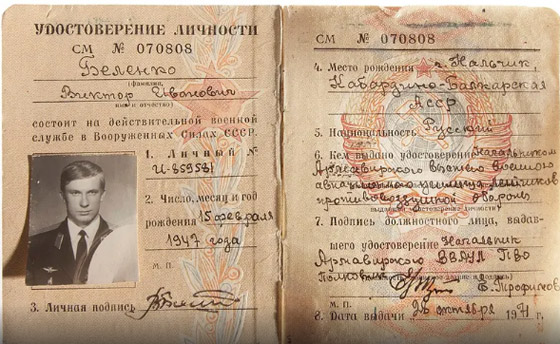 УДОСТОВЕРЕНИЕ ЛИЧНОСТИ
СМ № 070808
Беленко
(фамилия,
Виктор Иванович
имя и отчество)
состоит на действительной военной
службе в Вооруженных Силах СССР.
1. Личный №
И-859531
2. Число, месяц и год
рождения 15 февраля
1947 года
М. П.
3. Личная подпись
СМ № 070808
4. Место рождения г. Нальчик,
Кабардино-Балкарская
АССР
5. Национальность Русский
6. Кем выдано удостоверение Начальником
Армавирского высшего военного
авиационного училища летчиков
противовоздушной обороны
7. Подпись должностного лица, выдав-
шего удостоверение Начальник
Армавирского ВВАУЛ ПВО
Полковник Е. Трофимов
М. П.
8. Дата выдачи 26 октября 1971 г.